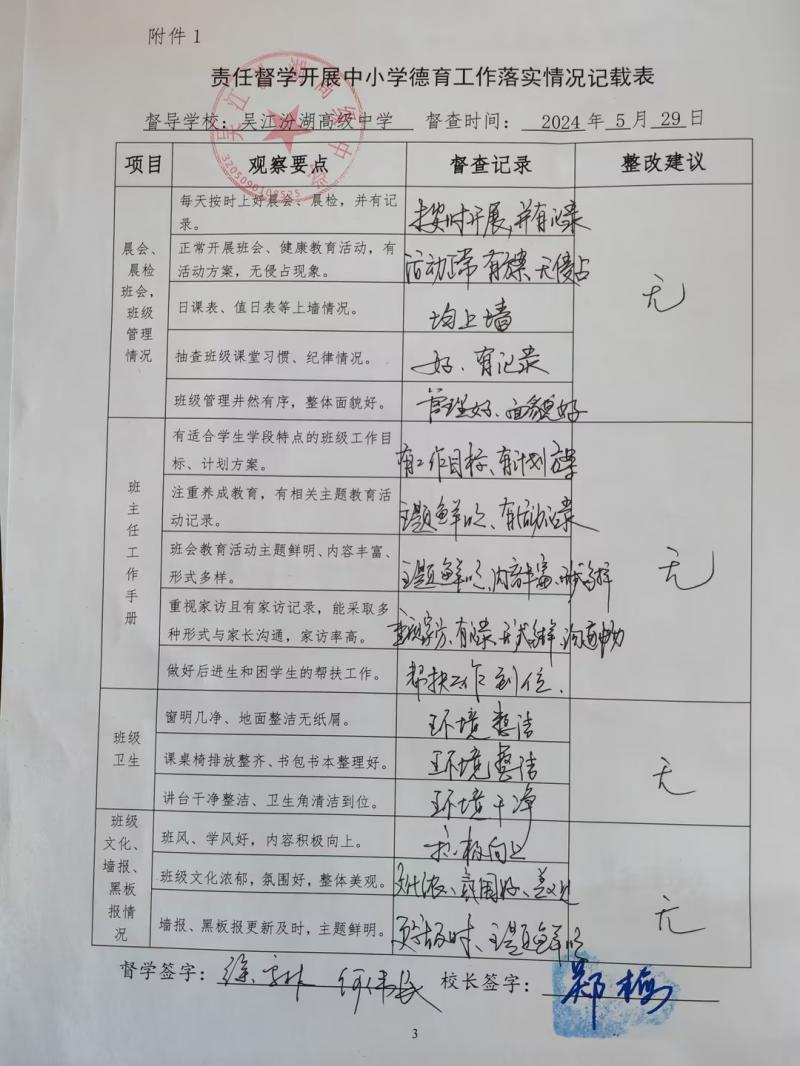 附件 1
责任督学开展中小学德育工作落实情况记载表
督导学校：吴江汾湖高级中学 督查时间： 2024 年 5 月 29 日
项目 观察要点 督查记录 整改建议
晨会、
晨检
班会，
班级
管理
情况
每天按时上好晨会、晨检，并有记
录。
按时开展，并有记录
正常开展班会、健康教育活动，有
活动方案，无侵占现象。
活动正常 有方案、无侵占
日课表、值日表等上墙情况。
均上墙
抽查班级课堂习惯、纪律情况。
好、有记录
班级管理井然有序，整体面貌好。
管理好、面貌好
无
班
主
任
工
作
手
册
有适合学生学段特点的班级工作目
标、计划方案。
有工作目标、有计划方案
注重养成教育，有相关主题教育活
动记录。
主题鲜明、有活动记录
班会教育活动主题鲜明、内容丰富、
形式多样。
主题鲜明、内容丰富、形式多样
重视家访且有家访记录，能采取多
种形式与家长沟通，家访率高。
重视家访、有记录、形式多样、沟通
做好后进生和困学生的帮扶工作。
帮扶工作到位.
无
班级
卫生
窗明几净、地面整洁无纸屑。
环境整洁
课桌椅排放整齐、书包书本整理好。
环境整洁
讲台干净整洁、卫生角清洁到位。
环境干净
无
班级
文化、
墙报、
黑板
报情
况
班风、学风好，内容积极向上。
积极向上
班级文化浓郁，氛围好，整体美观。
文化浓、氛围好、美观
墙报、黑板报更新及时，主题鲜明。
更新及时、主题鲜明
无
督学签字： 何伟民 校长签字： 郑梅
3
吴江汾湖高级中学